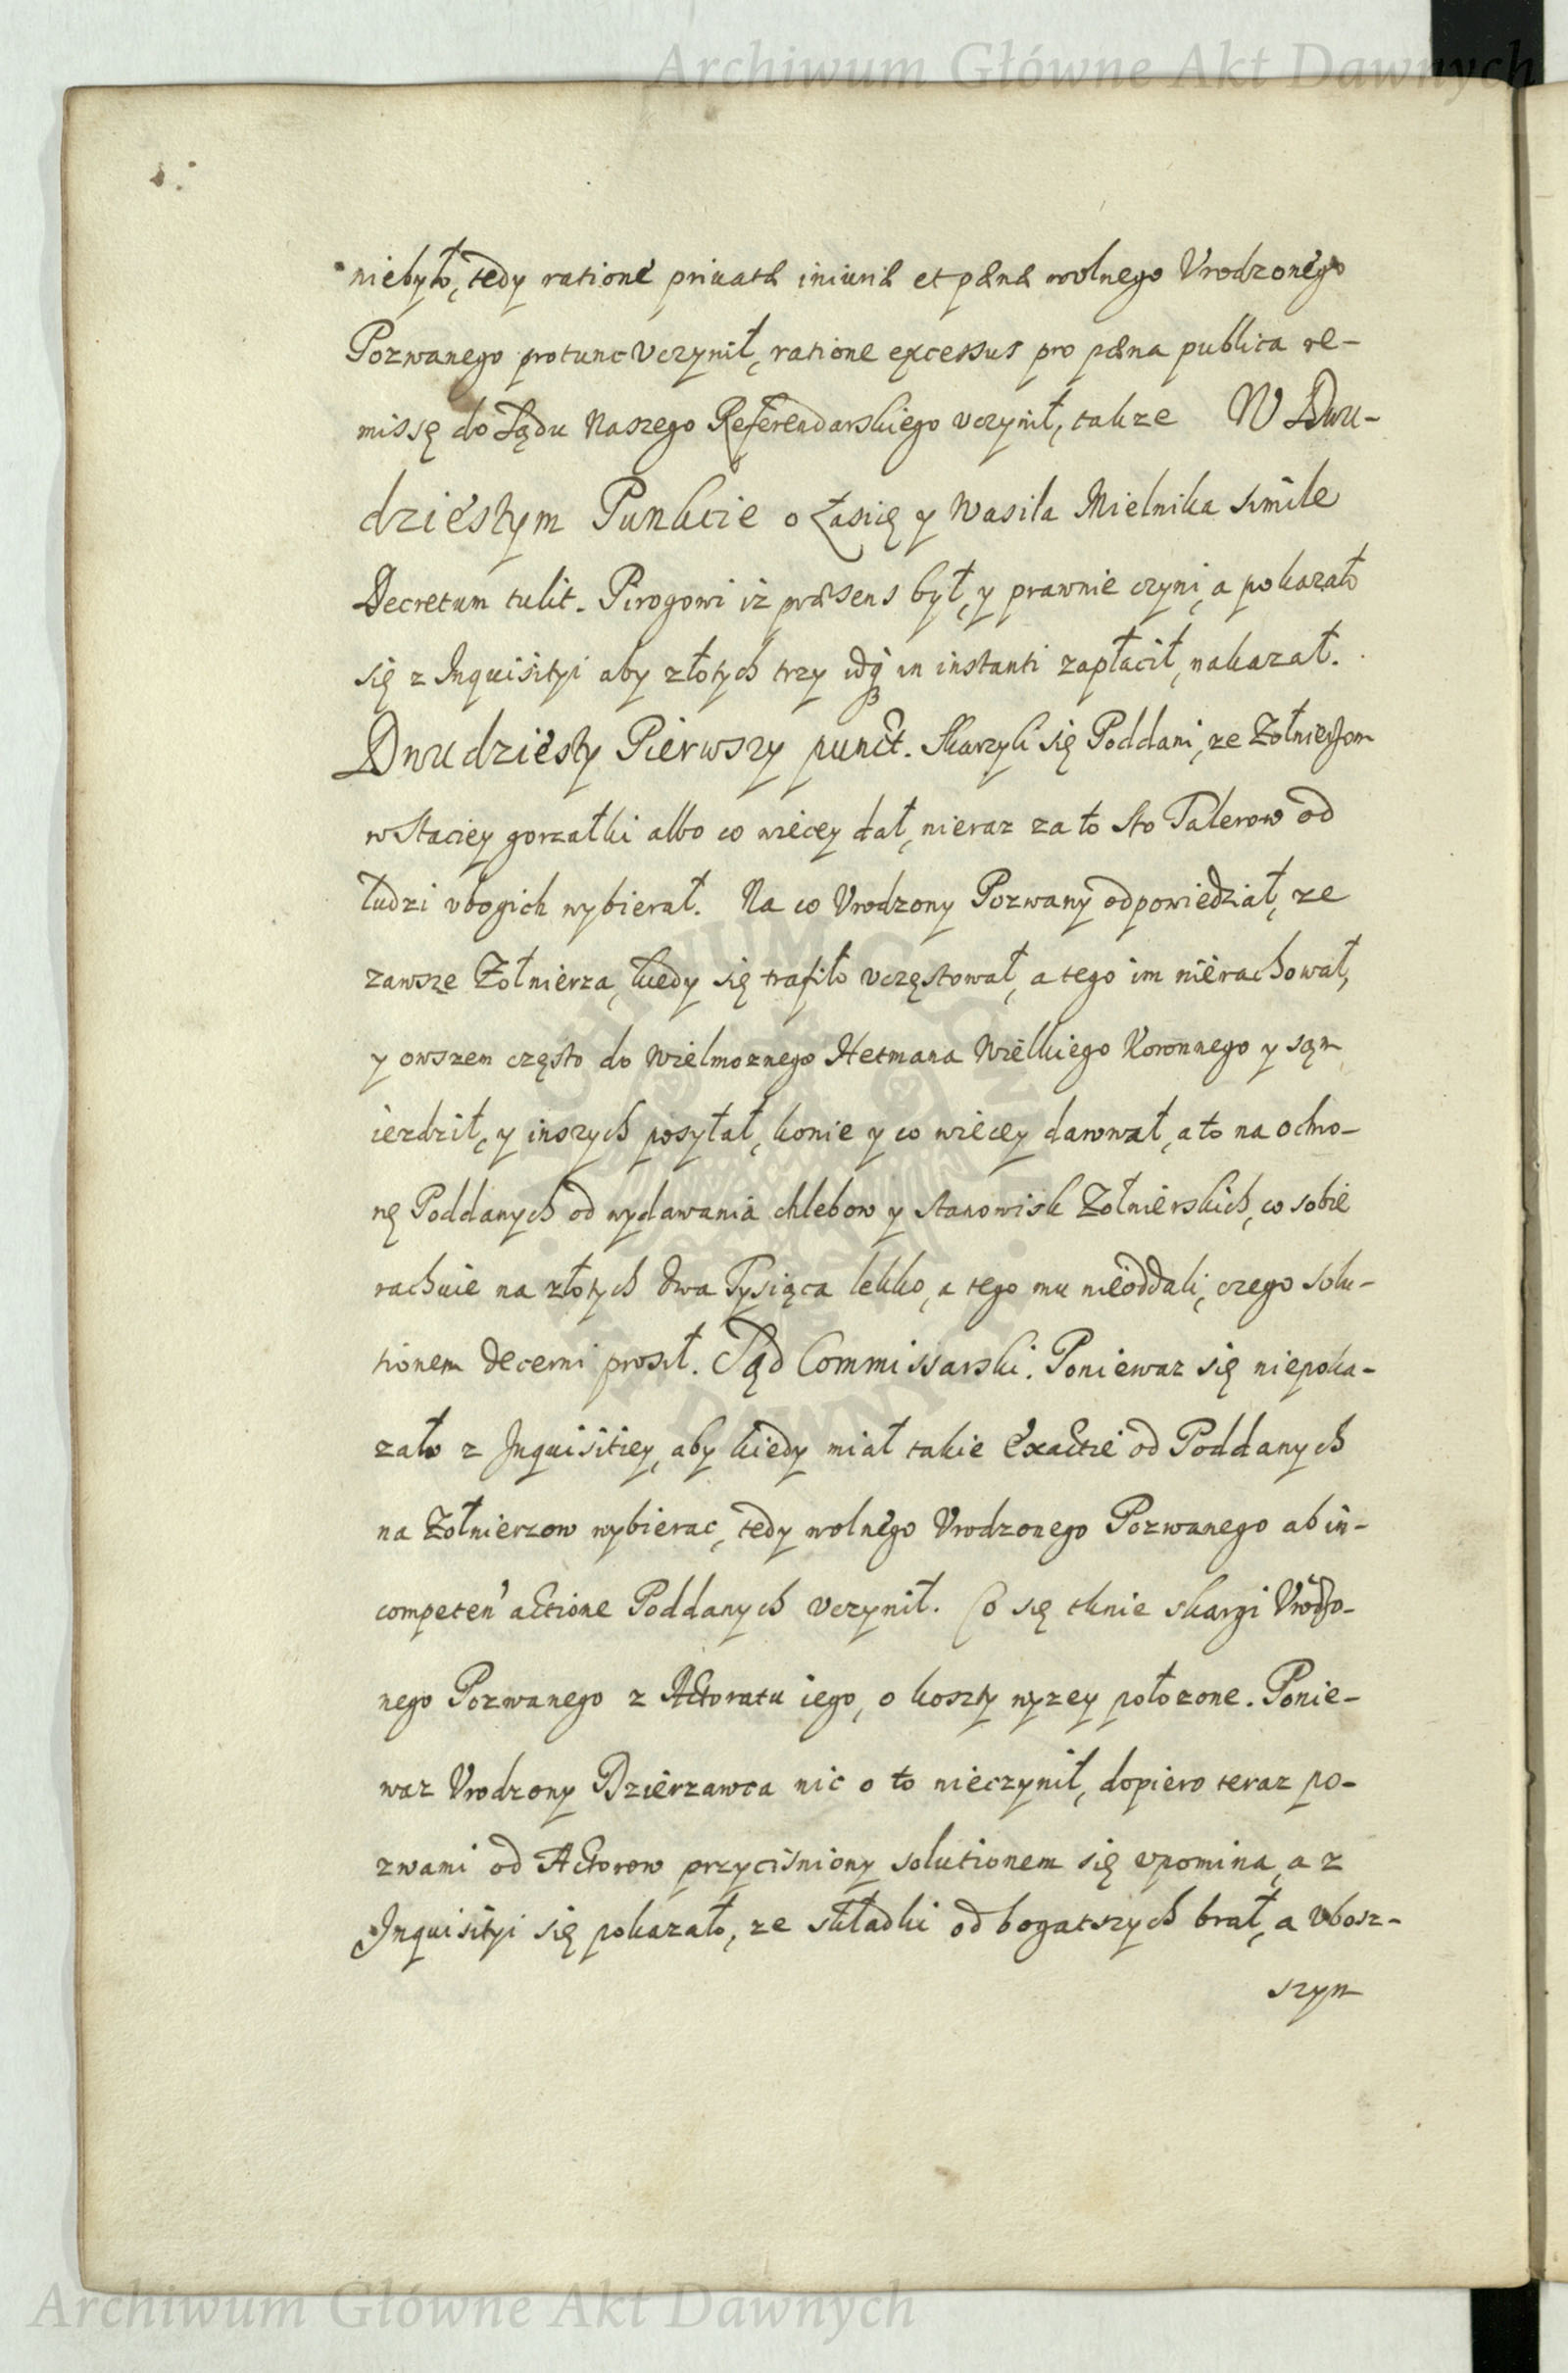 Archiwum Główne Akt Dawnych
niebyło, tedy ratione priuatæ iniuriæ et pænæ wolnego Vrodzonego
Pozwanego protunc Vczynił, ratione excessus pro pæna publica re-
missę do Sądu Naszego Referendarskiego vczynił, takze W Dwu-
dziestym Punkcie o Łasicę y Wasila Mielnika simile
Decretum tulit. Pirogowi iz præsens był, y prawnie czyni, a pokazało
się z Inquisityi aby złotych trzy in instanti zapłacił, nakazał.
Dwudziesty Pierwszy punct. Skarzyli się Poddani, ze Zołnierzom
w Staciey gorzałki albo co wiecey dał, nieraz za to Sto Talerow od
ludzi vbogich wybierał. Na co Vrodzony Pozwany odpowiedział, ze
zawsze Zołnierza, kiedy się trafiło vczęstował, a tego im nierachował,
y owszem często do Wielmoznego Hetmana Wielkiego Koronnego y sąm
iezdził, y inszych posyłał, konie y co wiecey darował, a to na ochro-
nę Poddanych od wydawania chlebow y stanowisk Zołnierskich, co sobie
rachuie na złotych dwa Tysiąca lekko, a tego mu nieoddali, czego solu-
tionem decerni prosił. Sąd Commissarski. Poniewaz się niepoka-
zało z Inquisitiey, aby kiedy miał takie exactie od Poddanych
na Zołnierzow wybierac, tedy wolnego Vrodzonego Pozwanego ab in-
competen actione Poddanych vczynił. Co się tknie skargi Vrodzo-
nego Pozwanego z Actoratu iego, o koszty wyzey połozone. Ponie-
waz Vrodzony Dzierzawca nic o to nieczynił, dopiero teraz po-
zwami od Actorow przyciśniony solutionem się vpomina, a z
Inquisityi się pokazało, ze składki od bogatszych brał, a vbosz-
szym
Archiwum Główne Akt Dawnych